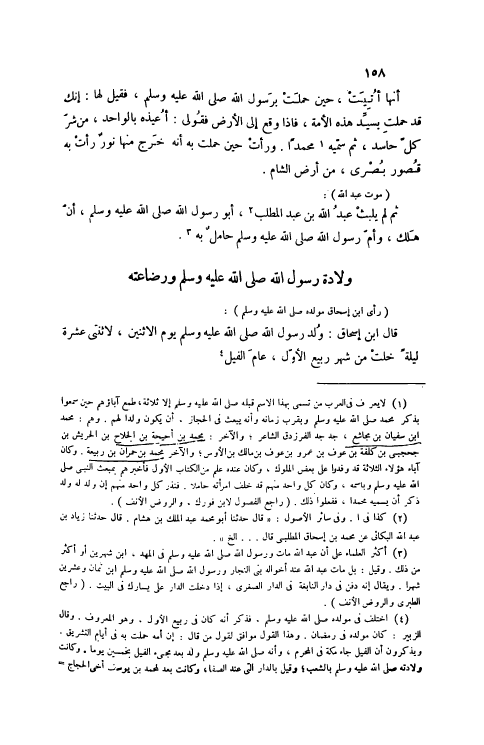 ١٥٨
أنها أُتِيَتْ ، حين حملتْ برَسول الله صلى الله عليه وسلم ، فقيل لها : إنك
قد حملتِ بسيِّد هذه الأمة ، فاذا وقع إلى الأرض فقولى : أُعيذه بالواحد ، من شرّ
كلّ حاسد ، ثم سمّيه ١ محمدًا . ورأتْ حين حملت به أنه خَرج منها نورٌ رأتْ به
قُصور بُصْرى ، من أرض الشام .
( موت عبد الله ) :
ثم لم يلبثْ عبدُ الله بن عبد المطلب ٢ ، أبو رسول الله صلى الله عليه وسلم ، أنْ
هلك ، وأمّ رسول الله صلى الله عليه وسلم حاملٌ به ٣ .
ولادة رسول الله صلى الله عليه وسلم ورضاعته
( رأى ابن إسحاق مولده صلى الله عليه وسلم ) :
قال ابن إسحاق : وُلد رسول الله صلى الله عليه وسلم يوم الاثنين ، لاثنتى عشرة
ليلةً خلتْ من شهر ربيع الأوّل ، عامَ الفيل ٤
(١) لايعرف فى العرب من تسمى بهذا الاسم قبله صلى الله عليه وسلم إلا ثلاثة ، طمع آباؤهم حين سمعوا
بذكر محمد صلى الله عليه وسلم وبقرب زمانه وأنه يبعث فى الحجاز . أن يكون ولدا لهم . وهم : محمد
ابن سفيان بن مجاشع ، جد جد الفرزدق الشاعر ؛ والآخر : محمد بن أحيحة بن الجلاح بن الحريش بن
جمحجبى بن كلفة بن عوف بن عمرو بن عوف بن مالك بن الأوس ؛ والآخر محمد بن حمران بن ربيعة . وكان
آباء هؤلاء الثلاثة قد وفدوا على بعض الملوك ، وكان عنده علم من الكتاب الأول فأخبرهم بمبعث النبى صلى
الله عليه وسلم وباسمه ، وكان كل واحد منهم قد خلف امرأته حاملا . فنذر كل واحد منهم إن ولد له ولد
ذكر أن يسميه محمدا ، ففعلوا ذلك . ( راجع الفصول لابن فورك . والروض الأنف ) .
(٢) كذا فى ا . وفى سائر الأصول : « قال حدثنا أبو محمد عبد الملك بن هشام . قال حدثنا زياد بن
عبد الله البكائى عن محمد بن إسحاق المطلبى قال . . . الخ » .
(٣) أكثر العلماء على أن عبد الله مات ورسول الله صلى الله عليه وسلم فى المهد ، ابن شهرين أو أكثر
من ذلك . وقيل : بل مات عبد الله عند أخواله بنى النجار ورسول الله صلى الله عليه وسلم ابن ثمان وعشرين
شهرا . ويقال إنه دفن فى دار النابغة فى الدار الصغرى ، إذا دخلت الدار على يسارك فى البيت . ( راجع
الطبرى والروض الأنف ) .
(٤) اختلف فى مولده صلى الله عليه وسلم . فذكر أنه كان فى ربيع الأول . وهو المعروف . وقال
الزبير : كان مولده فى رمضان . وهذا القول موافق لقول من قال : إن أمه حملت به فى أيام التشريق .
ويذكرون أن الفيل جاء مكة فى المحرم ، وأنه صلى الله عليه وسلم ولد بعد مجىء الفيل بخمسين يوما . وكانت
ولادته صلى الله عليه وسلم بالشعب ؛ وقيل بالدار التى عند الصفا ، وكانت بعد لمحمد بن يوسف أخى الحجاج =